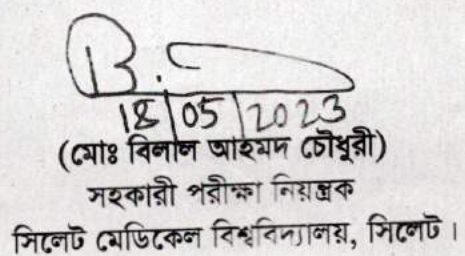 B.
18/05/2023
(মোঃ বিলাল আহমদ চৌধুরী)
সহকারী পরীক্ষা নিয়ন্ত্রক
সিলেট মেডিকেল বিশ্ববিদ্যালয়, সিলেট।